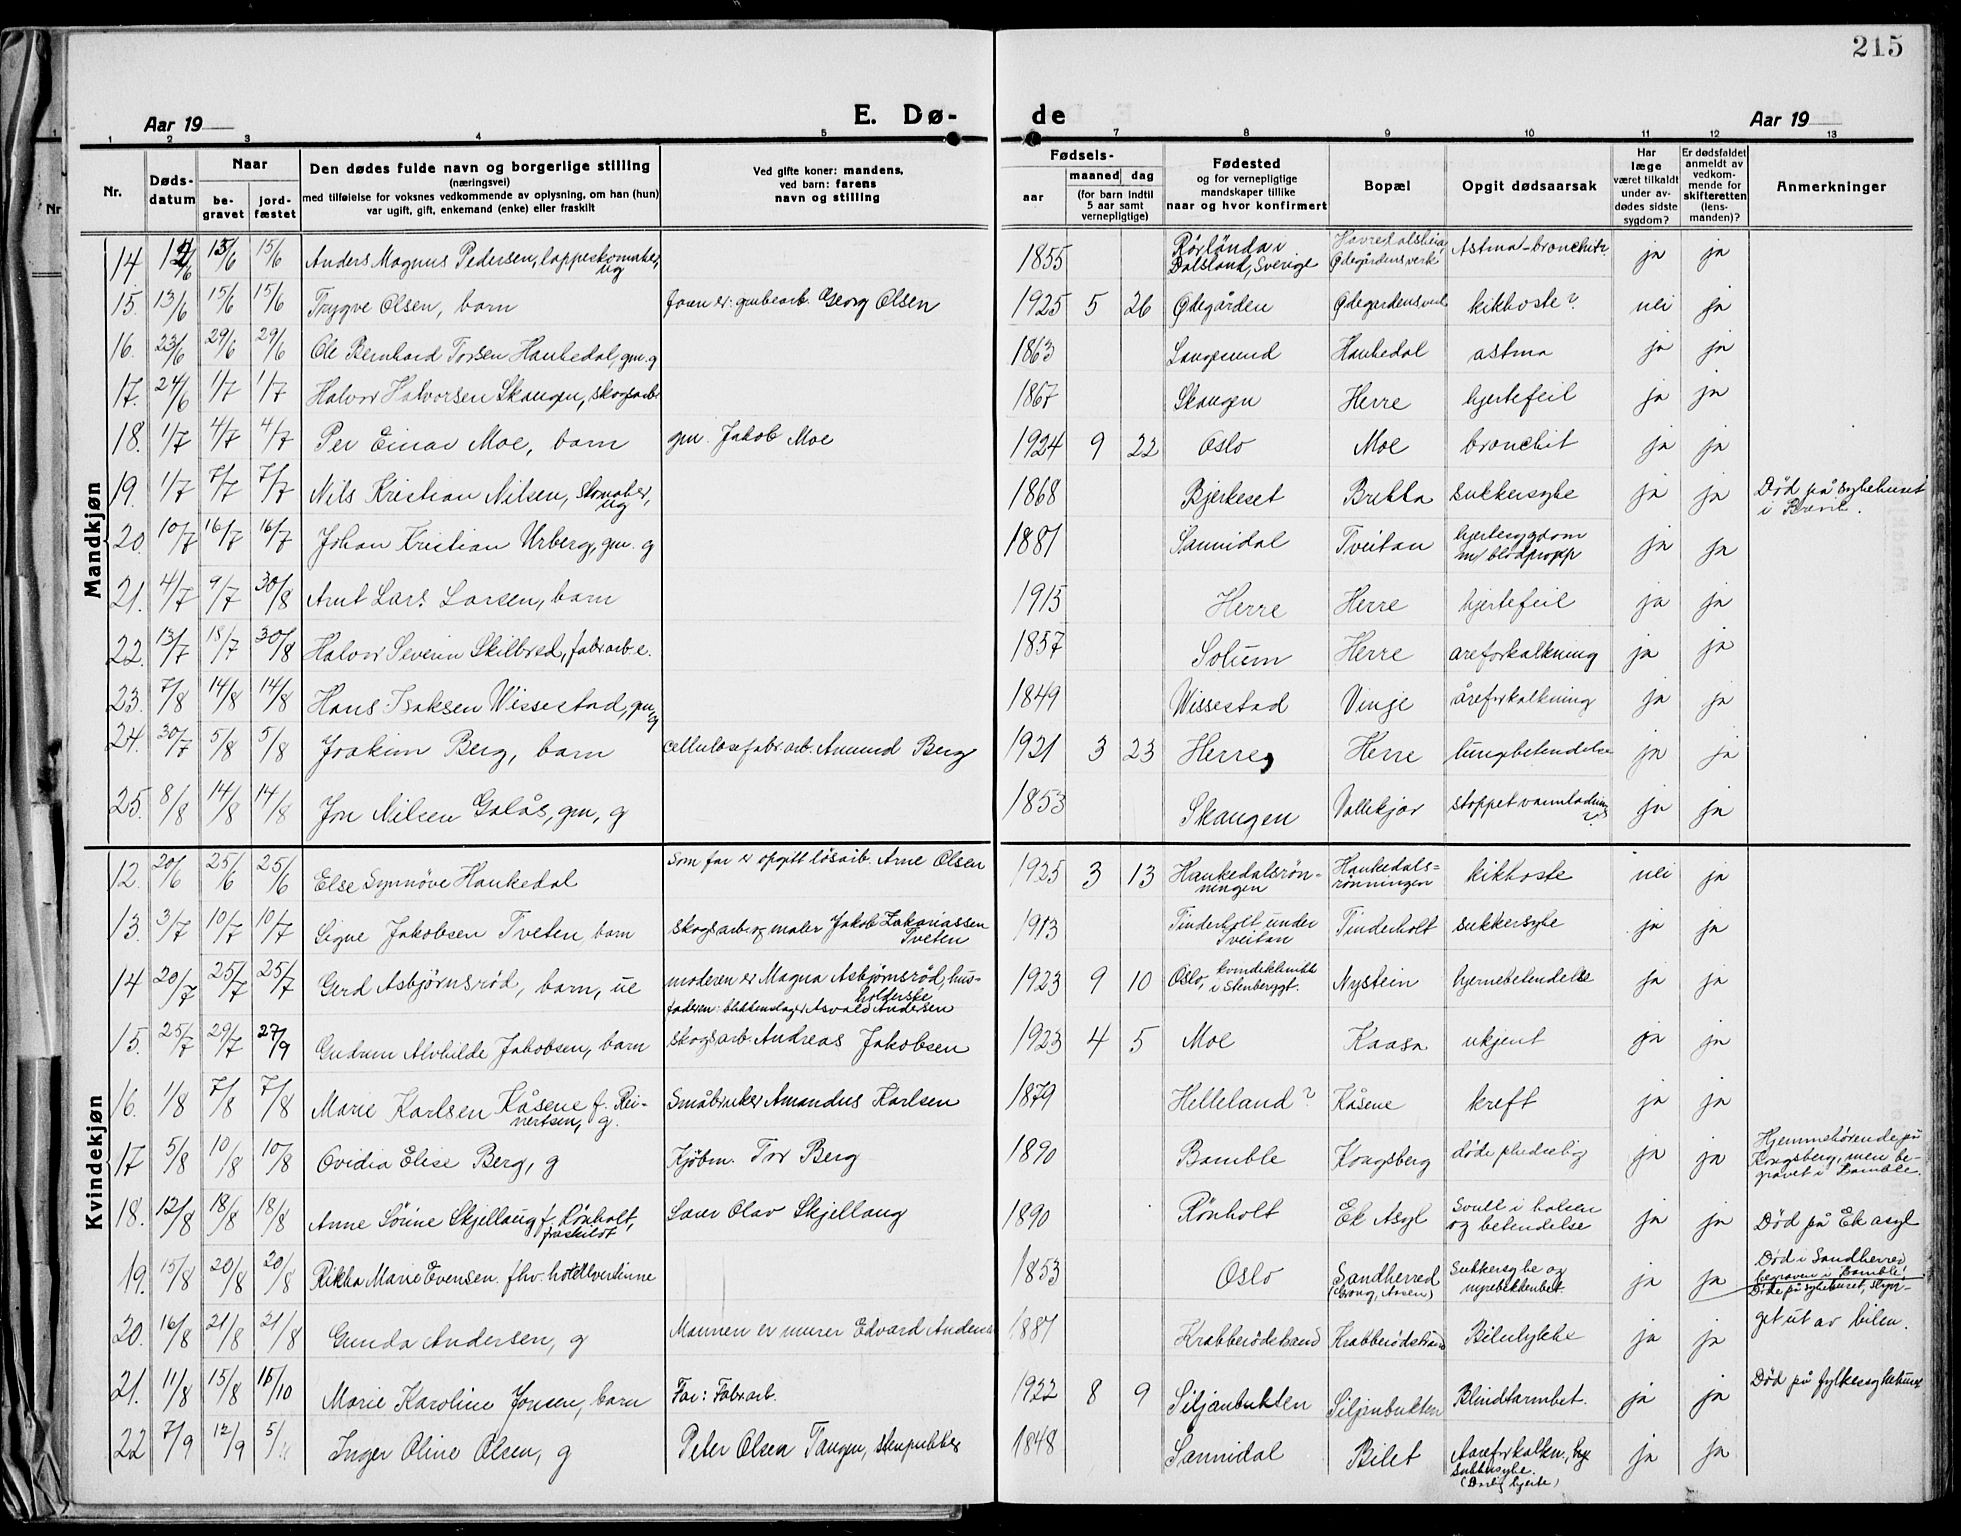 215
Aar 19 E. Dø- de Aar 19
1 2 3 4 5 7 8 9 10 11 12 13
Nr. Døds-datum Naar be-gravet jord-fæstet Den dødes fulde navn og borgerlige stilling (næringsvei) med tilføielse for voksnes vedkommende av oplysning, om han (hun) var ugift, gift, enkemand (enke) eller fraskilt Ved gifte koner: mandens, ved barn: farens navn og stilling Fødsels- aar maaned dag (for barn indtil 5 aar samt vernepligtige) Fødested og for vernepligtige mandskaper tillike naar og hvor konfirmert Bopæl Opgit dødsaarsak Har læge været tilkaldt under av-dødes sidste sygdom? Er dødsfaldet anmeldt av vedkom-mende for skifteretten (lens-manden)? Anmerkninger
Mandkjøn
14 13/6 15/6 Anders Magnus Pedersen, lappeskomaker, ug 1855 Dalsland, Sverige Havredalsheia, Ødegårdensverk Astma-bronchit ja ja
15. 13/6 15/6 15/6 Trygve Olsen, barn faren er: grubearb. Georg Olsen 1925 5 26 Ødegården Ødegardensverk kikhoste? nei ja
16. 23/6 29/6 29/6 Ole Bernhard Torsen Haukedal, gm. g 1863 Langsund Haukedal astma ja ja
17. 24/6 1/7 1/7 Halvor Halvorsen Skaugen, skogsarb 1867 Skaugen Herre hjertefeil ja ja
18. 1/7 4/7 4/7 Per Einar Moe, barn gm. Jakob Moe 1924 9 22 Oslo Moe bronchit ja ja
19. 1/7 7/7 7/7 Nils Kristian Nilsen, skomaker, ug 1868 Bjerkeset Brekka sukkersyke ja ja Død på sykehuset i Brevik.
20. 10/7 16/7 16/7 Johan Kristian Urberg, gm. g 1881 Sannidal Tveitan hjertesygdom m/ blodpropp ja ja
21. 4/7 9/7 30/8 Arnt Lars Larsen, barn 1915 Herre Herre hjertefeil ja ja
22. 13/7 18/7 30/8 Halvor Severin Skilbred, fabr.arb. e. 1857 Solum Herre areforkalkning ja ja
23. 7/8 14/8 14/8 Hans Isaksen Wissestad, gm, g 1849 Wissestad Vinje åreforkalkning ja ja
24. 30/7 5/8 5/8 Joakim Berg, barn cellulosefabr.arb. Amund Berg 1921 3 23 Herre, Herre lungebetendelse ja ja
25. 8/8 14/8 14/8 Jon Nilsen Galås, gm, g 1853 Skaugen Vallekjær stoppet vannladning ja ja
Kvindekjøn
12. 20/6 25/6 25/6 Else Synnøve Haukedal Som far er opgitt løsarb. Arne Olsen 1925 3 13 Haukedalsrønningen Haukedals=rønningen kikhoste nei ja
13. 3/7 10/7 10/7 Signe Jakobsen Tveten, barn skogsarb. og maler Jakob Zakariassen Tveten 1913 Tinderholt under Tveitan Tinderholt sukkersyke ja ja
14 20/7 25/7 25/7 Gerd Asbjørnsrød, barn, ue moderen er Magna Asbjørnsrød, husholderske faderen: blikkenslager Asvald Andersen 1923 9 10 Oslo, kvindeklinikk i Stenberggt. Nystein hjernebetendelse ja ja
15. 25/7 29/7 27/9 Gudrun Alvhilde Jakobsen, barn skogsarb. Andreas Jakobsen 1923 4 5 Moe Kaasa ukjent ja ja
16. 1/8 7/8 7/8 Marie Karlsen Kåsene f. Reinertsen, g. Småbruker Amandus Karlsen 1879 Helleland? Kåsene kreft ja ja
17 5/8 10/8 10/8 Ovidia Elise Berg, g Kjøbm. Tor Berg 1890 Bamble Kongsberg ja ja Hjemmehørende på Kongsberg, men begravet i Bamble.
18. 12/8 18/8 18/8 Anne Sörine Skjellaug f. Rönholt, fraskildt Olav Skjellaug 1890 Rönholt Ek Asyl Svull i halsen og betendelse ja ja Død på Ek asyl
19. 15/8 20/8 20/8 Rikka Marie Evensen. fhv. hotellvertinne 1853 Oslo Sandherred Sukkersyke og nyrebetendelse ja ja Død i Sandherred, begraven i Bamble!
20. 16/8 21/8 21/8 Gunda Andersen, g Mannen er murer Edvard Andersen 1887 Krabberødstrand Krabberødstrand Bilulykke ja ja Døde på sykehuset, slynget ut av bilen.
21. 11/8 15/8 Marie Karoline Jonsen, barn Far: Fabr.arb. 1922 8 9 Siljanbukten Siljanbukten Blindtarmbet. ja ja Død på fylkessykehuset
22 7/9 12/9 Inger Oline Olsen, g Peter Olsen Tangen, stenpukker 1848 Sannidal Bilet Aareforkalkn., sukkersyke. (Darlig hjerte) ja ja